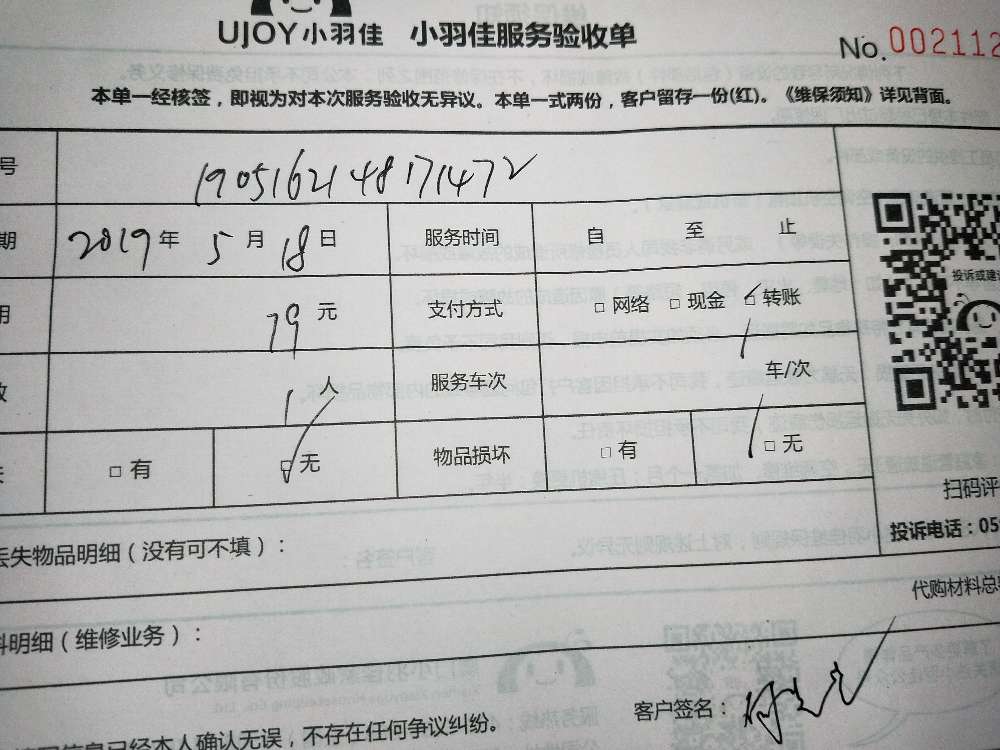 UJOY小羽佳 小羽佳服务验收单
No. 002112
本单一经核签，即视为对本次服务验收无异议。本单一式两份，客户留存一份(红)。《维保须知》详见背面。
号 1905162148171472
期 2019 年 5 月 18 日 服务时间 自 至 止
用 79 元 支付方式 □ 网络 □ 现金 □ 转账
数 1 人 服务车次 1 车/次
失 □ 有 □ 无 物品损坏 □ 有 □ 无
投诉或建议
扫码评
投诉电话：05
丢失物品明细（没有可不填）：
代购材料总额
料明细（维修业务）：
客户签名：
信息已经本人确认无误，不存在任何争议纠纷。